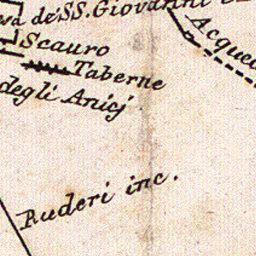 va de SS. Giovanni
Acque
Scauro
Taberne
degli Anicj
Ruderi inc.